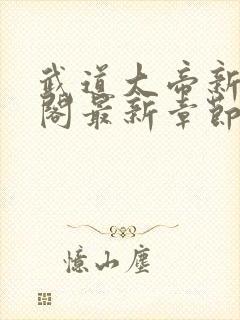 武道大帝新
閣最新章節
憶山塵